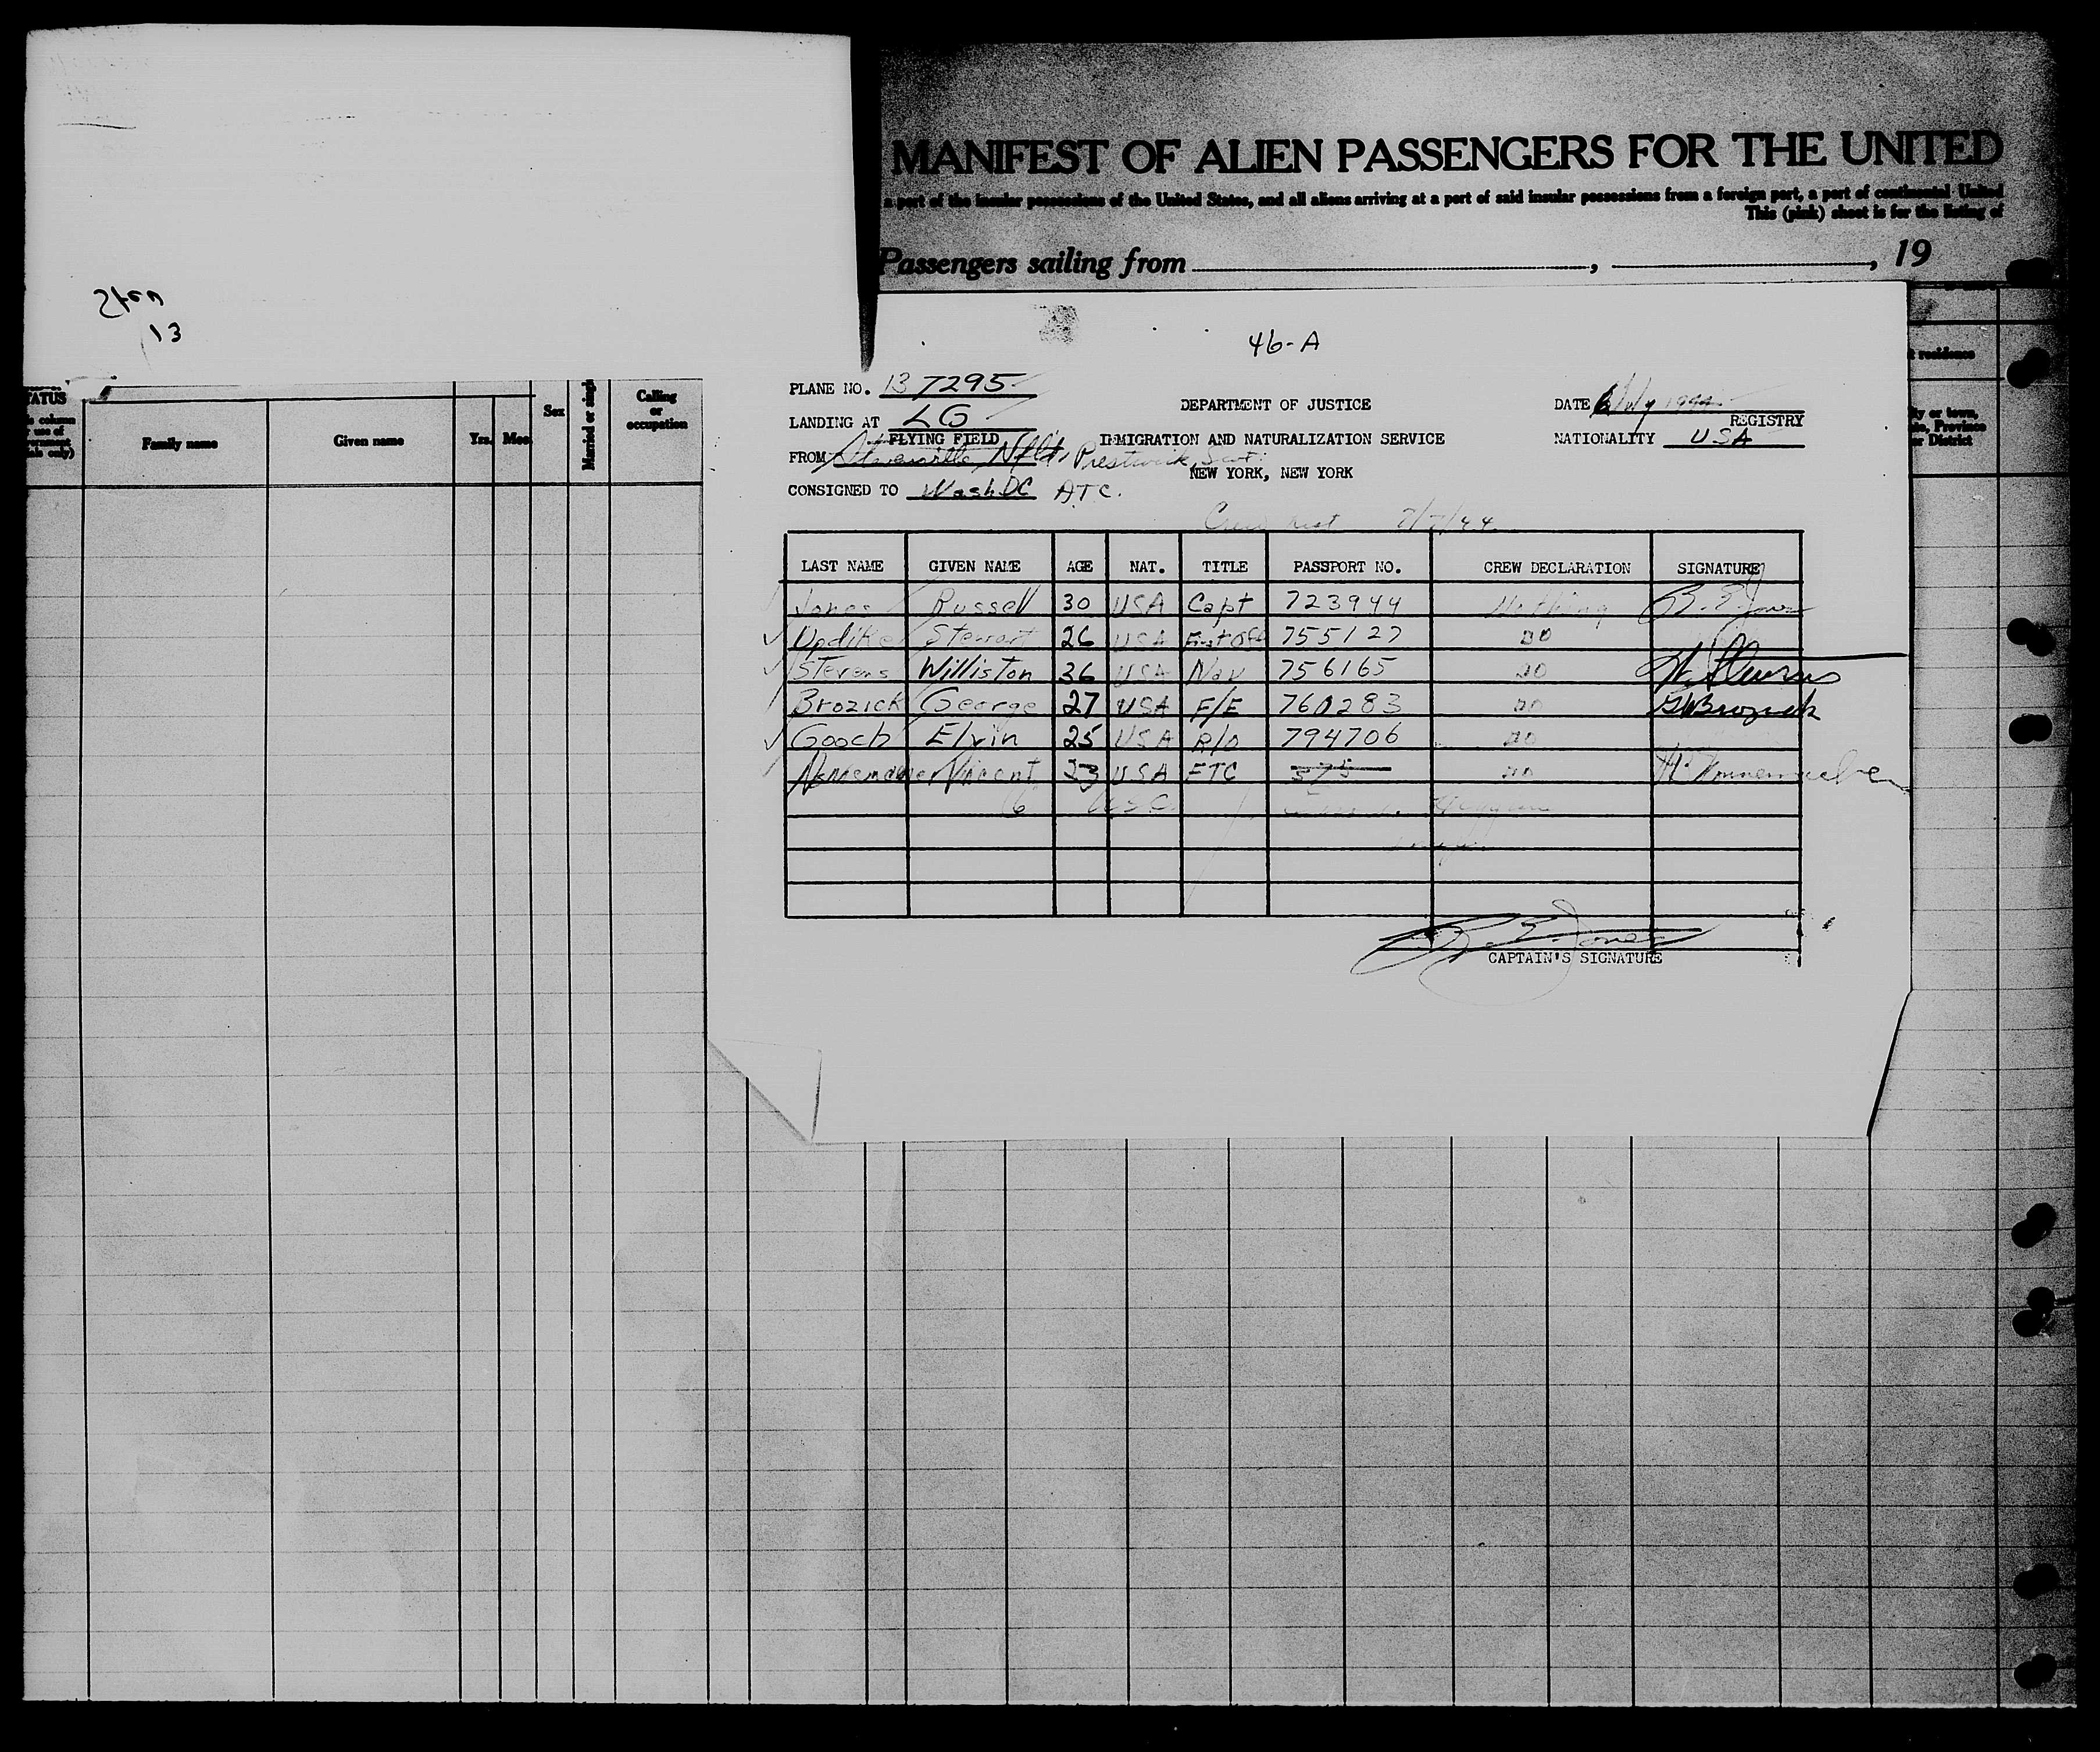 MANIFEST OF ALIEN PASSENGERS FOR THE UNITED
a port of the insular possessions of the United States, and all aliens arriving at a port of said insular possessions from a foreign port, a port of continental United
This (pink) sheet is for the listing of
Passengers sailing from , , 19
13
46-A
PLANE NO. 13 7295
LANDING AT LG
FLYING FIELD
FROM Nfld, Prestwick, Scot.
CONSIGNED TO Wash DC ATC.
DEPARTMENT OF JUSTICE
IMMIGRATION AND NATURALIZATION SERVICE
NEW YORK, NEW YORK
DATE 6 July 1944
REGISTRY
NATIONALITY USA
Crew list 7/7/44
LAST NAME GIVEN NAME AGE NAT. TITLE PASSPORT NO. CREW DECLARATION SIGNATURE
Jones Russell 30 USA Capt 723944 Nothing R. E. Jones
Updike Stewart 26 USA First Off 755127 DO
Stevens Williston 36 USA Nav 756165 DO W. Stevens
Brozick George 27 USA F/E 760283 DO GW Brozick
Gooch Elvin 25 USA R/O 794706 DO
Vincent 23 USA FTC 575 DO
6 USC
R. E. Jones
CAPTAIN'S SIGNATURE
STATUS
Family name
Given name
Yrs.
Mos.
Sex
Married or single
Calling
or
occupation
residence
or town,
Province
or District